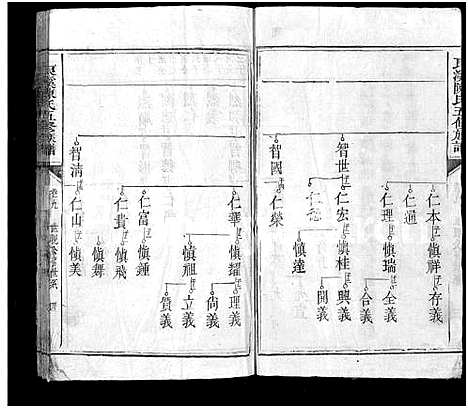 陳氏五修族譜
仁本
慎祥
存義
仁通
仁理
慎瑞
全義
合義
智世
仁宏
慎桂
興義
開義
仁
慎達
智國
仁榮
仁華
慎耀
理義
尚義
慎祖
立義
質義
仁富
慎鍾
仁貴
慎飛
慎舞
智清
仁山
慎美